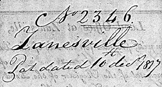 No 2346
Zanesville
Pat dated 10 Dec 1827